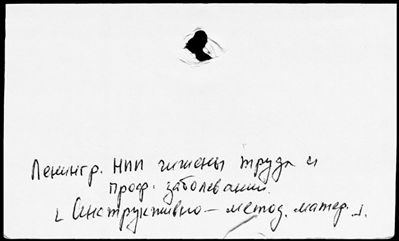 Ленингр. НИИ гигиены труда и
проф. заболеваний.
[Инструктивно-метод. матер.].